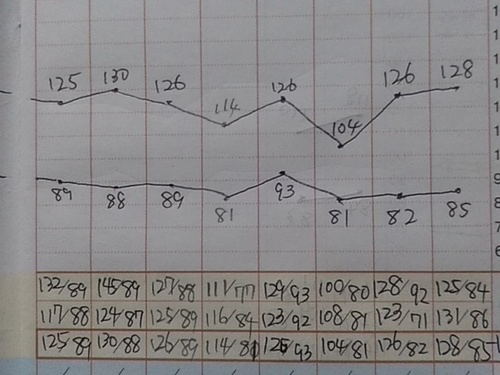 125 130 126 114 126 104 126 128
89 88 89 81 93 81 82 85
132/89 145/89 127/88 111/77 129/93 100/80 128/92 125/84
117/88 124/87 125/89 116/84 123/92 108/81 123/71 131/86
125/89 130/88 126/89 114/81 126/93 104/81 126/82 128/85